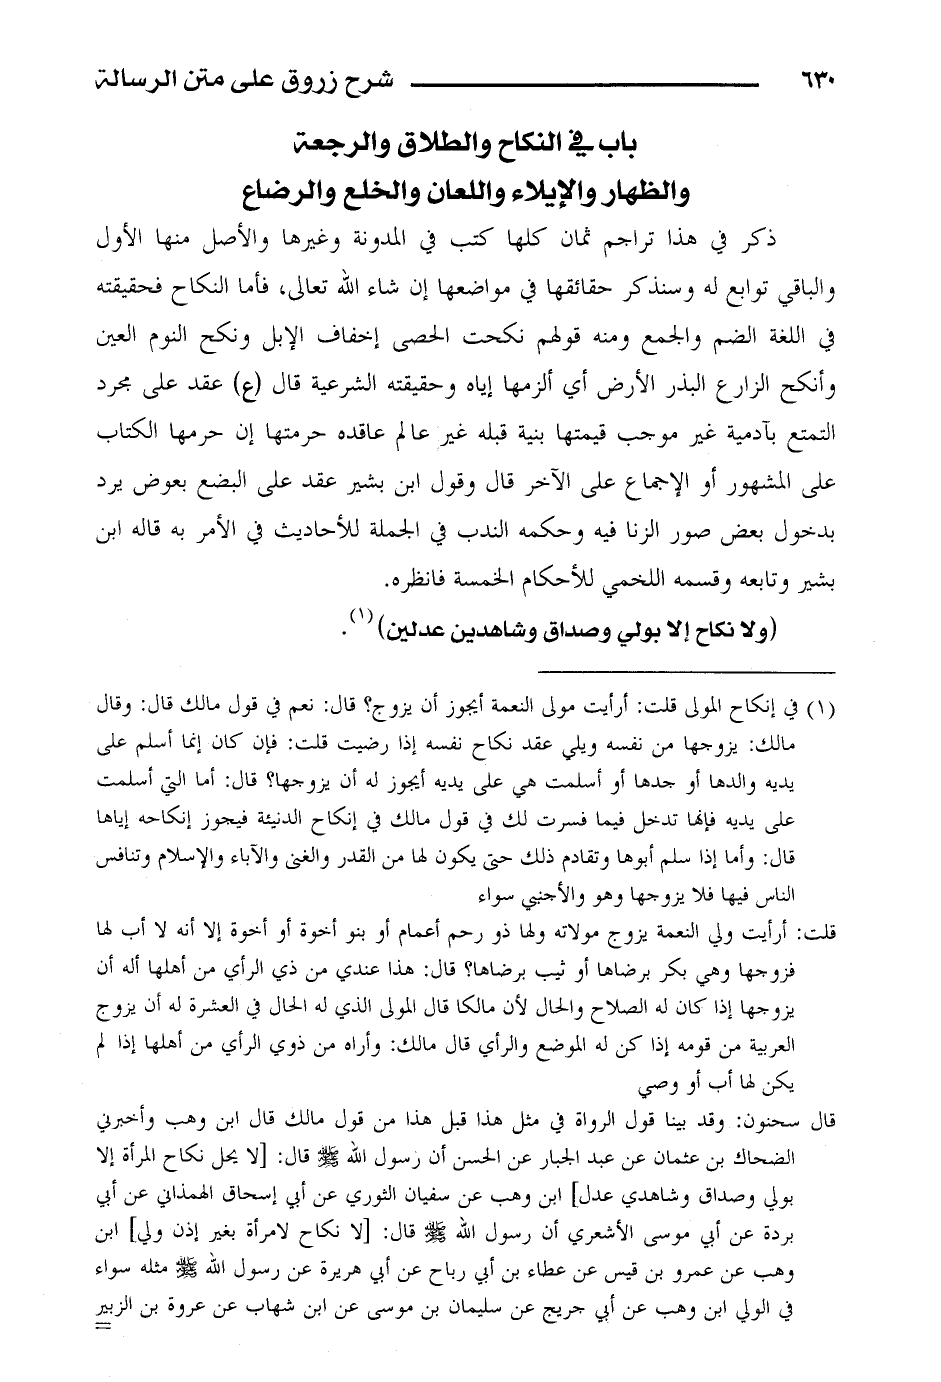 ٦٣٠ شرح زروق على متن الرسالة
باب في النكاح والطلاق والرجعة
والظهار والإيلاء واللعان والخلع والرضاع
ذكر في هذا تراجم ثمان كلها كتب في المدونة وغيرها والأصل منها الأول
والباقي توابع له وسنذكر حقائقها في مواضعها إن شاء الله تعالى، فأما النكاح فحقيقته
في اللغة الضم والجمع ومنه قولهم نكحت الحصى إخفاف الإبل ونكح النوم العين
وأنكح الزارع البذر الأرض أي ألزمها إياه وحقيقته الشرعية قال (ع) عقد على مجرد
التمتع بآدمية غير موجب قيمتها بنية قبله غير عالم عاقده حرمتها إن حرمها الكتاب
على المشهور أو الإجماع على الآخر قال وقول ابن بشير عقد على البضع بعوض يرد
بدخول بعض صور الزنا فيه وحكمه الندب في الجملة للأحاديث في الأمر به قاله ابن
بشير وتابعه وقسمه اللخمي للأحكام الخمسة فانظره.
(ولا نكاح إلا بولي وصداق وشاهدين عدلين)(١).
(١) في إنكاح المولى قلت: أرأيت مولى النعمة أيجوز أن يزوج؟ قال: نعم في قول مالك قال: وقال
مالك: يزوجها من نفسه ويلي عقد نكاح نفسه إذا رضيت قلت: فإن كان إنما أسلم على
يديه والدها أو جدها أو أسلمت هي على يديه أيجوز له أن يزوجها؟ قال: أما التي أسلمت
على يديه فإنها تدخل فيما فسرت لك في قول مالك في إنكاح الدنيئة فيجوز إنكاحه إياها
قال: وأما إذا سلم أبوها وتقادم ذلك حتى يكون لها من القدر والغنى والآباء والإسلام وتنافس
الناس فيها فلا يزوجها وهو والأجنبي سواء
قلت: أرأيت ولي النعمة يزوج مولاته ولها ذو رحم أعمام أو بنو أخوة أو أخوة إلا أنه لا أب لها
فزوجها وهي بكر برضاها أو ثيب برضاها؟ قال: هذا عندي من ذي الرأي من أهلها أله أن
يزوجها إذا كان له الصلاح والحال لأن مالكا قال المولى الذي له الحال في العشرة له أن يزوج
العربية من قومه إذا كن له الموضع والرأي قال مالك: وأراه من ذوي الرأي من أهلها إذا لم
يكن لها أب أو وصي
قال سحنون: وقد بينا قول الرواة في مثل هذا قبل هذا من قول مالك قال ابن وهب وأخبرني
الضحاك بن عثمان عن عبد الجبار عن الحسن أن رسول الله ﷺ قال: [لا يحل نكاح المرأة إلا
بولي وصداق وشاهدي عدل] ابن وهب عن سفيان الثوري عن أبي إسحاق الهمذاني عن أبي
بردة عن أبي موسى الأشعري أن رسول الله ﷺ قال: [لا نكاح لامرأة بغير إذن ولي] ابن
وهب عن عمرو بن قيس عن عطاء بن أبي رباح عن أبي هريرة عن رسول الله ﷺ مثله سواء
في الولي ابن وهب عن أبي جريج عن سليمان بن موسى عن ابن شهاب عن عروة بن الزبير
=